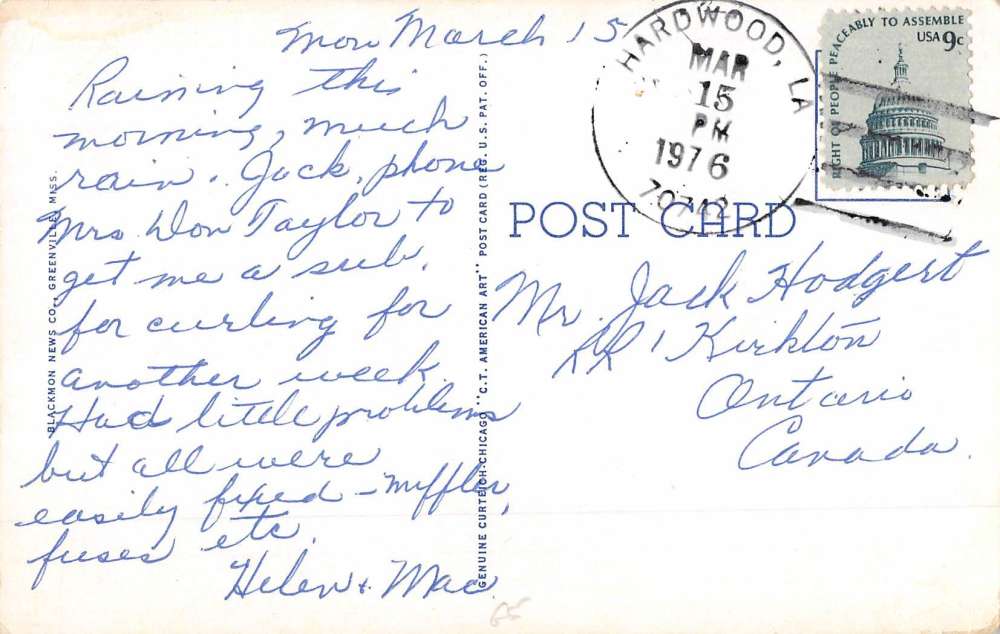 Mon March 15
Raining this
morning, much
rain. Jack, phone
Mrs Don Taylor to
get me a sub.
for curling for
another week.
Had little problems
but all were
easily fixed - muffler,
fuses etc.
Helen & Mac.
BLACKMON NEWS CO., GREENVILLE, MISS.
GENUINE CURTEICH-CHICAGO "C.T. AMERICAN ART" POST CARD (REG. U.S. PAT. OFF.)
HARDWOOD, LA
MAR
15
PM
1976
70742
RIGHT OF PEOPLE PEACEABLY TO ASSEMBLE
USA 9c
POST CARD
Mr. Jack Hodgert
RR 1 Kirkton
Ontario
Canada.
65